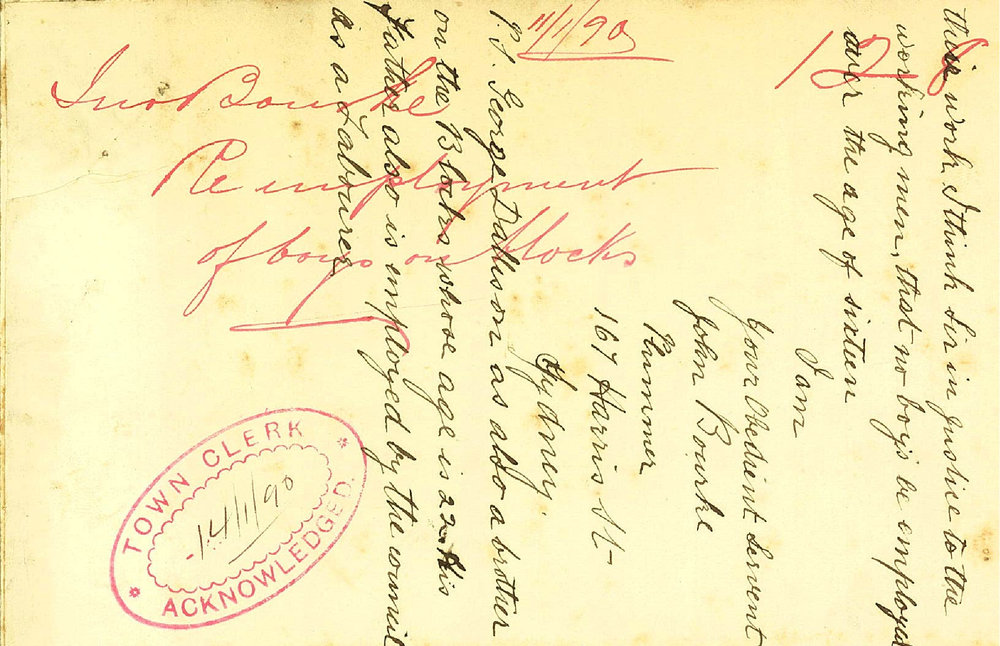 their work I think Sir in Justice to the
working men, that no boy's be employed
under the age of sixteen
I am
Your Obedient Servent
John Bourke
Plummer
167 Harris St
Sydney
P.S. George Dallison as also a brother
on the Blocks whose age is 22 His
Father also is employed by the council
as a Labourer
11/1/90
128
Jno Bourke
Re employment
of boys on blocks
TOWN CLERK
14/1/90
ACKNOWLEDGED.